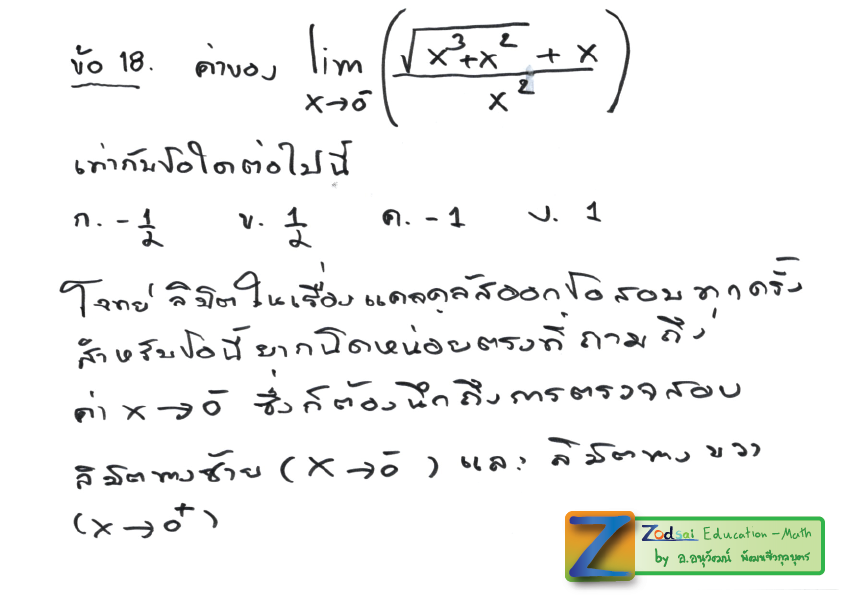 ข้อ 18. ค่าของ lim x→0⁻ (√(x³+x²) + x / x²)
เท่ากับข้อใดต่อไปนี้
ก. -1/2 ข. 1/2 ค. -1 ง. 1
โจทย์ ลิมิตในเรื่องแคลคูลัสออกข้อสอบทุกครั้ง
สำหรับข้อนี้ยากนิดหน่อยตรงที่ ถามถึง
ค่า x→0⁻ ซึ่งก็ต้องนึกถึงการตรวจสอบ
ลิมิตทางซ้าย (x→0⁻) และ ลิมิตทางขวา
(x→0⁺)
Zodsai Education - Math
by อ.อนุวัฒน์